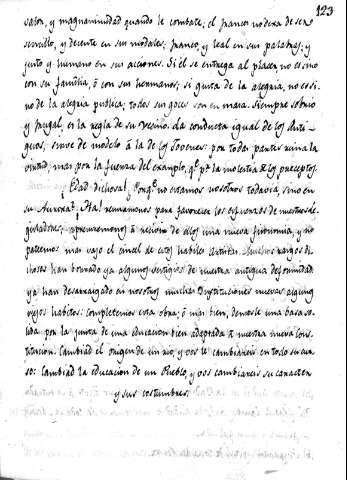 123
valor, y magnanimidad quando le combate; el franco no dexa de ser
sencillo, y decente en sus modales; franco, y leal en sus palabras; y
justo y humano en sus acciones. Si él se entrega al placer, no es sino
con su familia, ó con sus hermanos; si gusta de la alegria, no es si
no de la alegria publica; todos sus goces son en masa. Siempre sobrio
y frugal, es la regla de su vecino. La conducta igual de los Anti-
guos, sirve de modelo á la de los Jovenes: por todas partes reina la
virtud, mas por la fuerza del exemplo, q.e p.r la molestia de los preceptos.
¡Edad dichosa! ¿Porq.e no estamos nosotros todavia, sino en
su Aurora? ¡Ha! reunamonos para favorecer los esfuerzos de nuestros le-
gisladores; apresuremonos á recibir de ellos una nueva fisonomia, y no
patemos mas bajo el cincel de estos habiles Artistas. Muchos rasgos di-
chosos han borrado ya algunos vestigios de nuestra antigua deformidad
ya han desarraigado en nosotros muchas Instituciones nuevas algunos
viejos habitos: completemos esta obra; ó mas bien, demosle una basa so-
lida por la junta de una educacion bien adaptada á nuestra nueva Cons-
titucion. Cambiad el origen de un rio, y vos le cambiareis en todo su cur-
so: Cambiad la educacion de un Pueblo, y vos cambiareis su caracter
y sus costumbres.